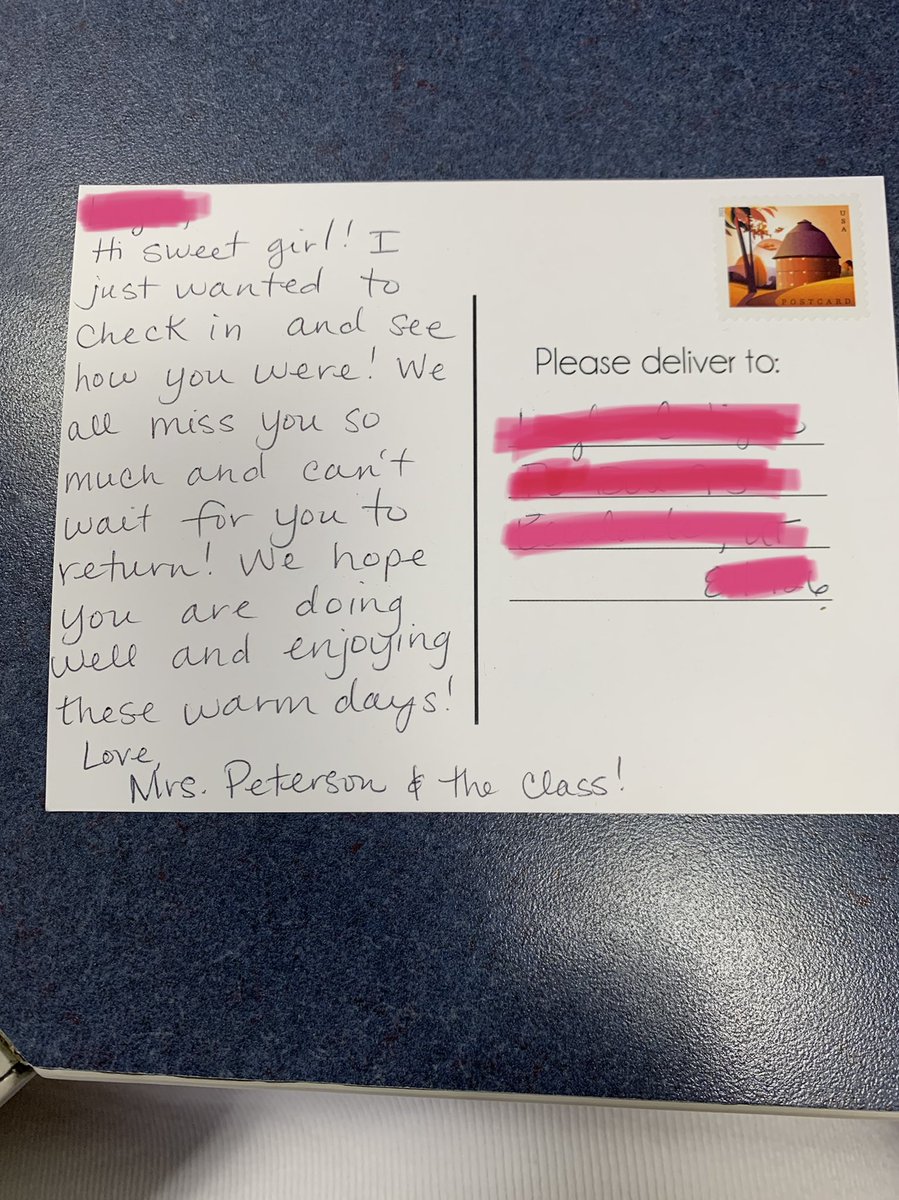 Hi sweet girl! I
just wanted to
check in and see
how you were! We
all miss you so
much and can't
wait for you to
return! We hope
you are doing
well and enjoying
these warm days!
Love,
Mrs. Peterson & the class!
USA
POSTCARD
Please deliver to: